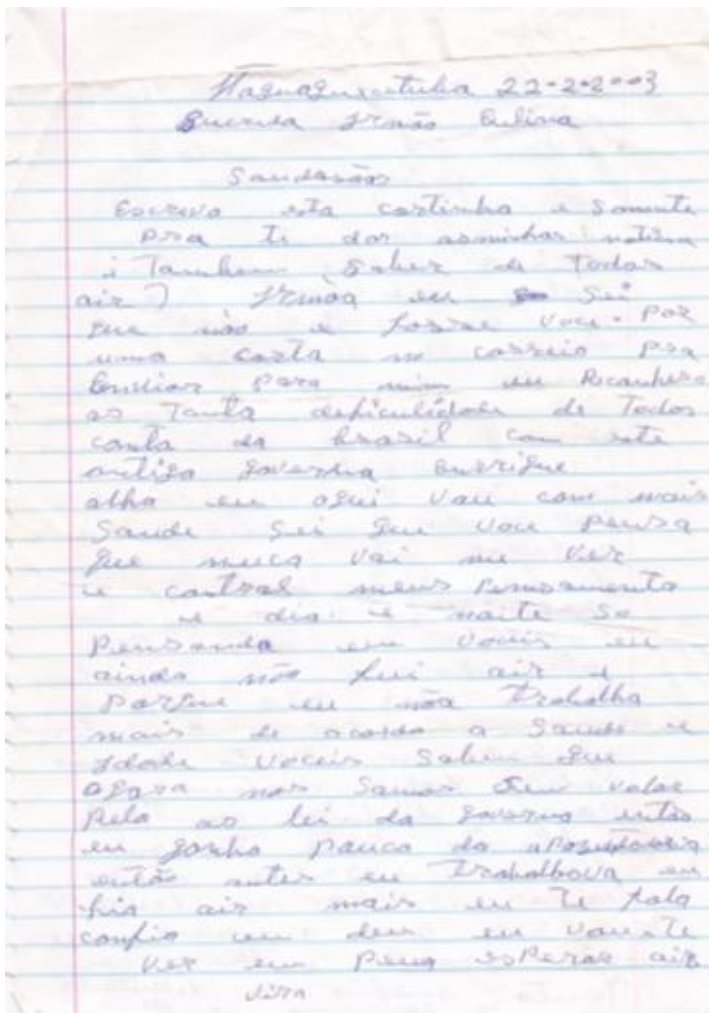 Itaguaquecetuba 22-2-2003
Querida Irmão Eulina
Saudasões
Escrevo esta cartinha e somente
pra ti dar asminhas notisia
i Também Saber de Todos
air) Irmõa eu Sei
que não e fosse voce. Por
uma carta no correio pra
Enviar para mim eu Reconheso
as Tanta deficulidade de Todos
canta do brasil com este
antigo governa
olha eu aqui vou com mais
Saude Sei que voce pensa
que nunca vai me ver
e contral meus Pensamento
e dia e noite So
Pensando em voceis eu
aindo não fui air e
porque eu não Trabalha
mais de acordo a Saude e
Idade voceis Sabem que
agora nos Samos Sem valor
Pela as lei do governo então
eu ganho pauco da aposentadoria
então antes eu Trabalhova eu
hia air mais eu Te fala
confio em deus eu vou Te
ver em Peus esperar air